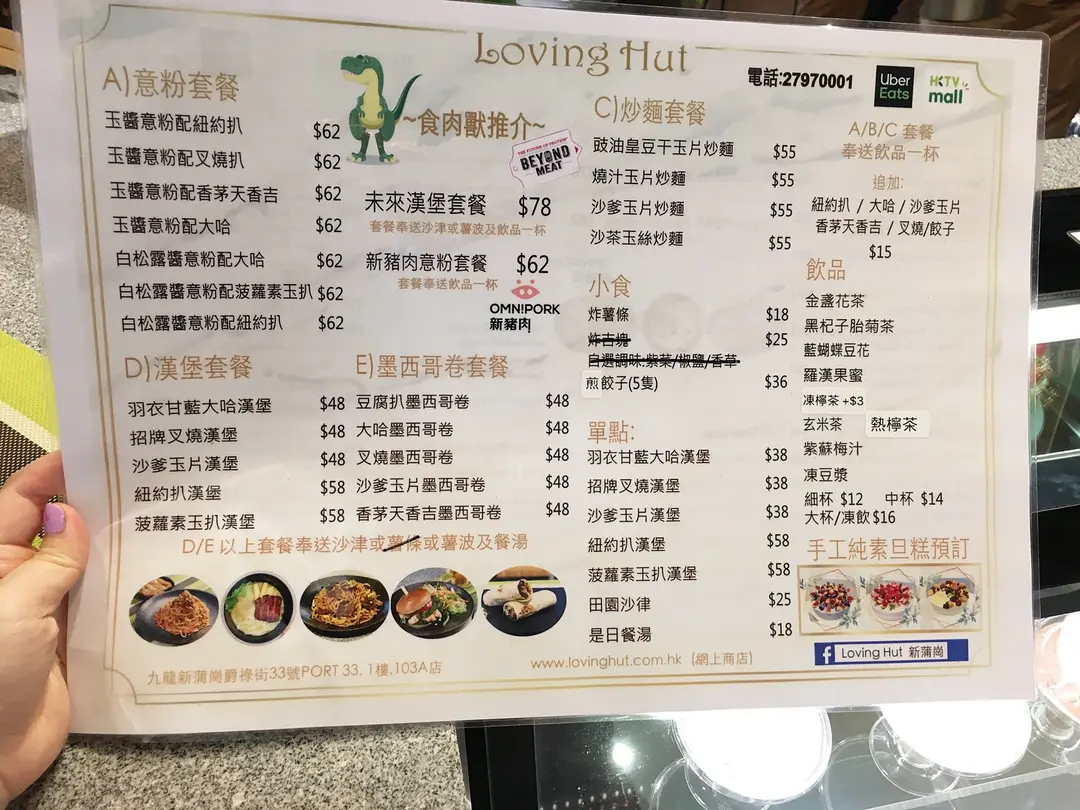 Loving Hut
電話:27970001
Uber Eats
HKTV mall
A)意粉套餐
玉醬意粉配紐約扒 $62
玉醬意粉配叉燒扒 $62
玉醬意粉配香茅天香吉 $62
玉醬意粉配大哈 $62
白松露醬意粉配大哈 $62
白松露醬意粉配菠蘿素玉扒 $62
白松露醬意粉配紐約扒 $62
~食肉獸推介~
THE FUTURE OF PROTEIN
BEYOND MEAT
未來漢堡套餐 $78
套餐奉送沙津或薯波及飲品一杯
新豬肉意粉套餐 $62
套餐奉送飲品一杯
OMN!PORK
新豬肉
C)炒麵套餐
豉油皇豆干玉片炒麵 $55
燒汁玉片炒麵 $55
沙爹玉片炒麵 $55
沙茶玉絲炒麵 $55
A/B/C 套餐
奉送飲品一杯
追加:
紐約扒 / 大哈 / 沙爹玉片
香茅天香吉 / 叉燒/餃子
$15
小食
炸薯條 $18
炸古塊 $25
自選調味:紫菜/椒鹽/香草
煎餃子(5隻) $36
飲品
金盞花茶
黑杞子胎菊茶
藍蝴蝶豆花
羅漢果蜜
凍檸茶 +$3
玄米茶 熱檸茶
紫蘇梅汁
凍豆漿
細杯 $12 中杯 $14
大杯/凍飲 $16
D)漢堡套餐
羽衣甘藍大哈漢堡 $48
招牌叉燒漢堡 $48
沙爹玉片漢堡 $48
紐約扒漢堡 $58
菠蘿素玉扒漢堡 $58
E)墨西哥卷套餐
豆腐扒墨西哥卷 $48
大哈墨西哥卷 $48
叉燒墨西哥卷 $48
沙爹玉片墨西哥卷 $48
香茅天香吉墨西哥卷 $48
D/E 以上套餐奉送沙津或薯條或薯波及餐湯
單點:
羽衣甘藍大哈漢堡 $38
招牌叉燒漢堡 $38
沙爹玉片漢堡 $38
紐約扒漢堡 $58
菠蘿素玉扒漢堡 $58
田園沙律 $25
是日餐湯 $18
手工純素旦糕預訂
f Loving Hut 新蒲崗
九龍新蒲崗爵祿街33號PORT 33, 1樓,103A店
www.lovinghut.com.hk (網上商店)